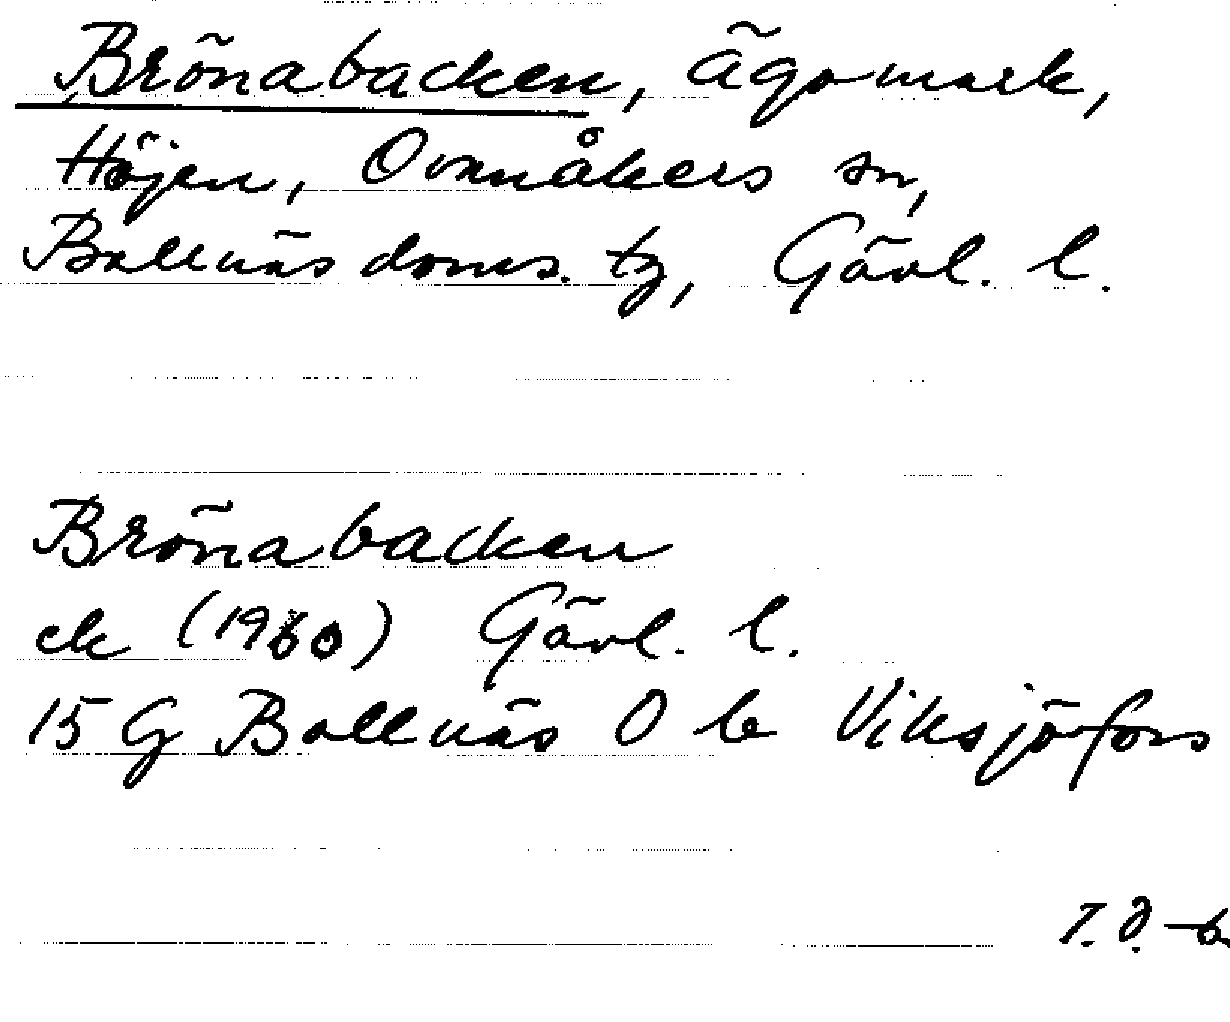 Brönabacken, ägomark,
Höjen, Ovanåkers sn,
Bollnäs doms. tg, Gävl. l.
Brönabacken
ek (1960) Gävl. l.
15 G Bollnäs 0 b Viksjöfors